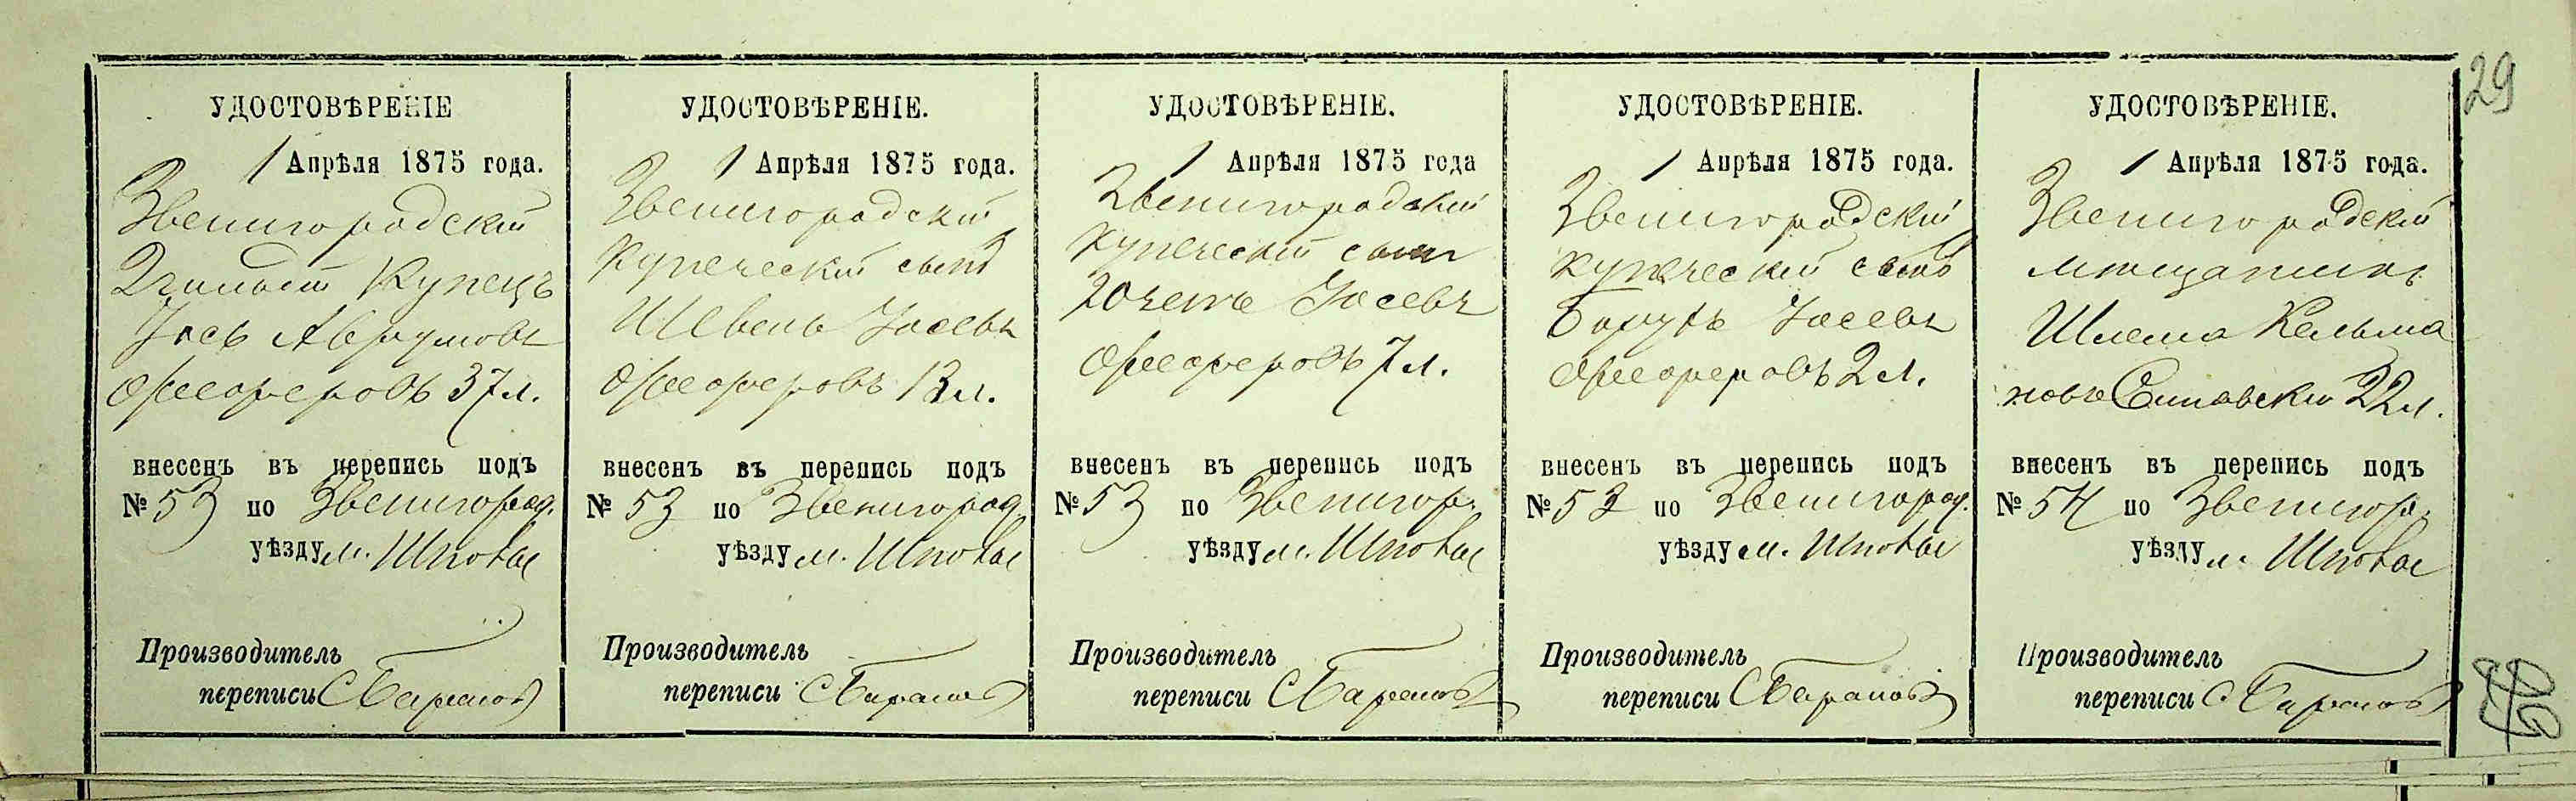 29
УДОСТОВѢРЕНІЕ
1 Апрѣля 1875 года.
Звенигородскій
2 гильдіи Купецъ
Іось Аврумовъ
37 л.
внесенъ въ перепись подъ
№ 53 по Звенигород.
уѣзду м. Шпола
Производитель
переписи С Барановъ
УДОСТОВѢРЕНІЕ.
1 Апрѣля 1875 года.
Звенигородскій
купеческій сынъ
Шевель Іосевъ
13 л.
внесенъ въ перепись подъ
№ 53 по Звенигород.
уѣзду м. Шпола
Производитель
переписи С Барановъ
УДОСТОВѢРЕНІЕ.
1 Апрѣля 1875 года
Звенигородскій
купеческій сынъ
Іосевъ
7 л.
внесенъ въ перепись подъ
№ 53 по Звенигор.
уѣзду м. Шпола
Производитель
переписи С Барановъ
УДОСТОВѢРЕНІЕ.
1 Апрѣля 1875 года.
Звенигородскій
купеческій сынъ
Борухъ Іосевъ
2 л.
внесенъ въ перепись подъ
№ 53 по Звенигород.
уѣзду м. Шпола
Производитель
переписи С Барановъ
УДОСТОВѢРЕНІЕ.
1 Апрѣля 1875 года.
Звенигородскій
мѣщанинъ
Шлема Кельма
новъ 32 л.
внесенъ въ перепись подъ
№ 54 по Звенигор.
уѣзду м. Шпола
Производитель
переписи С Барановъ